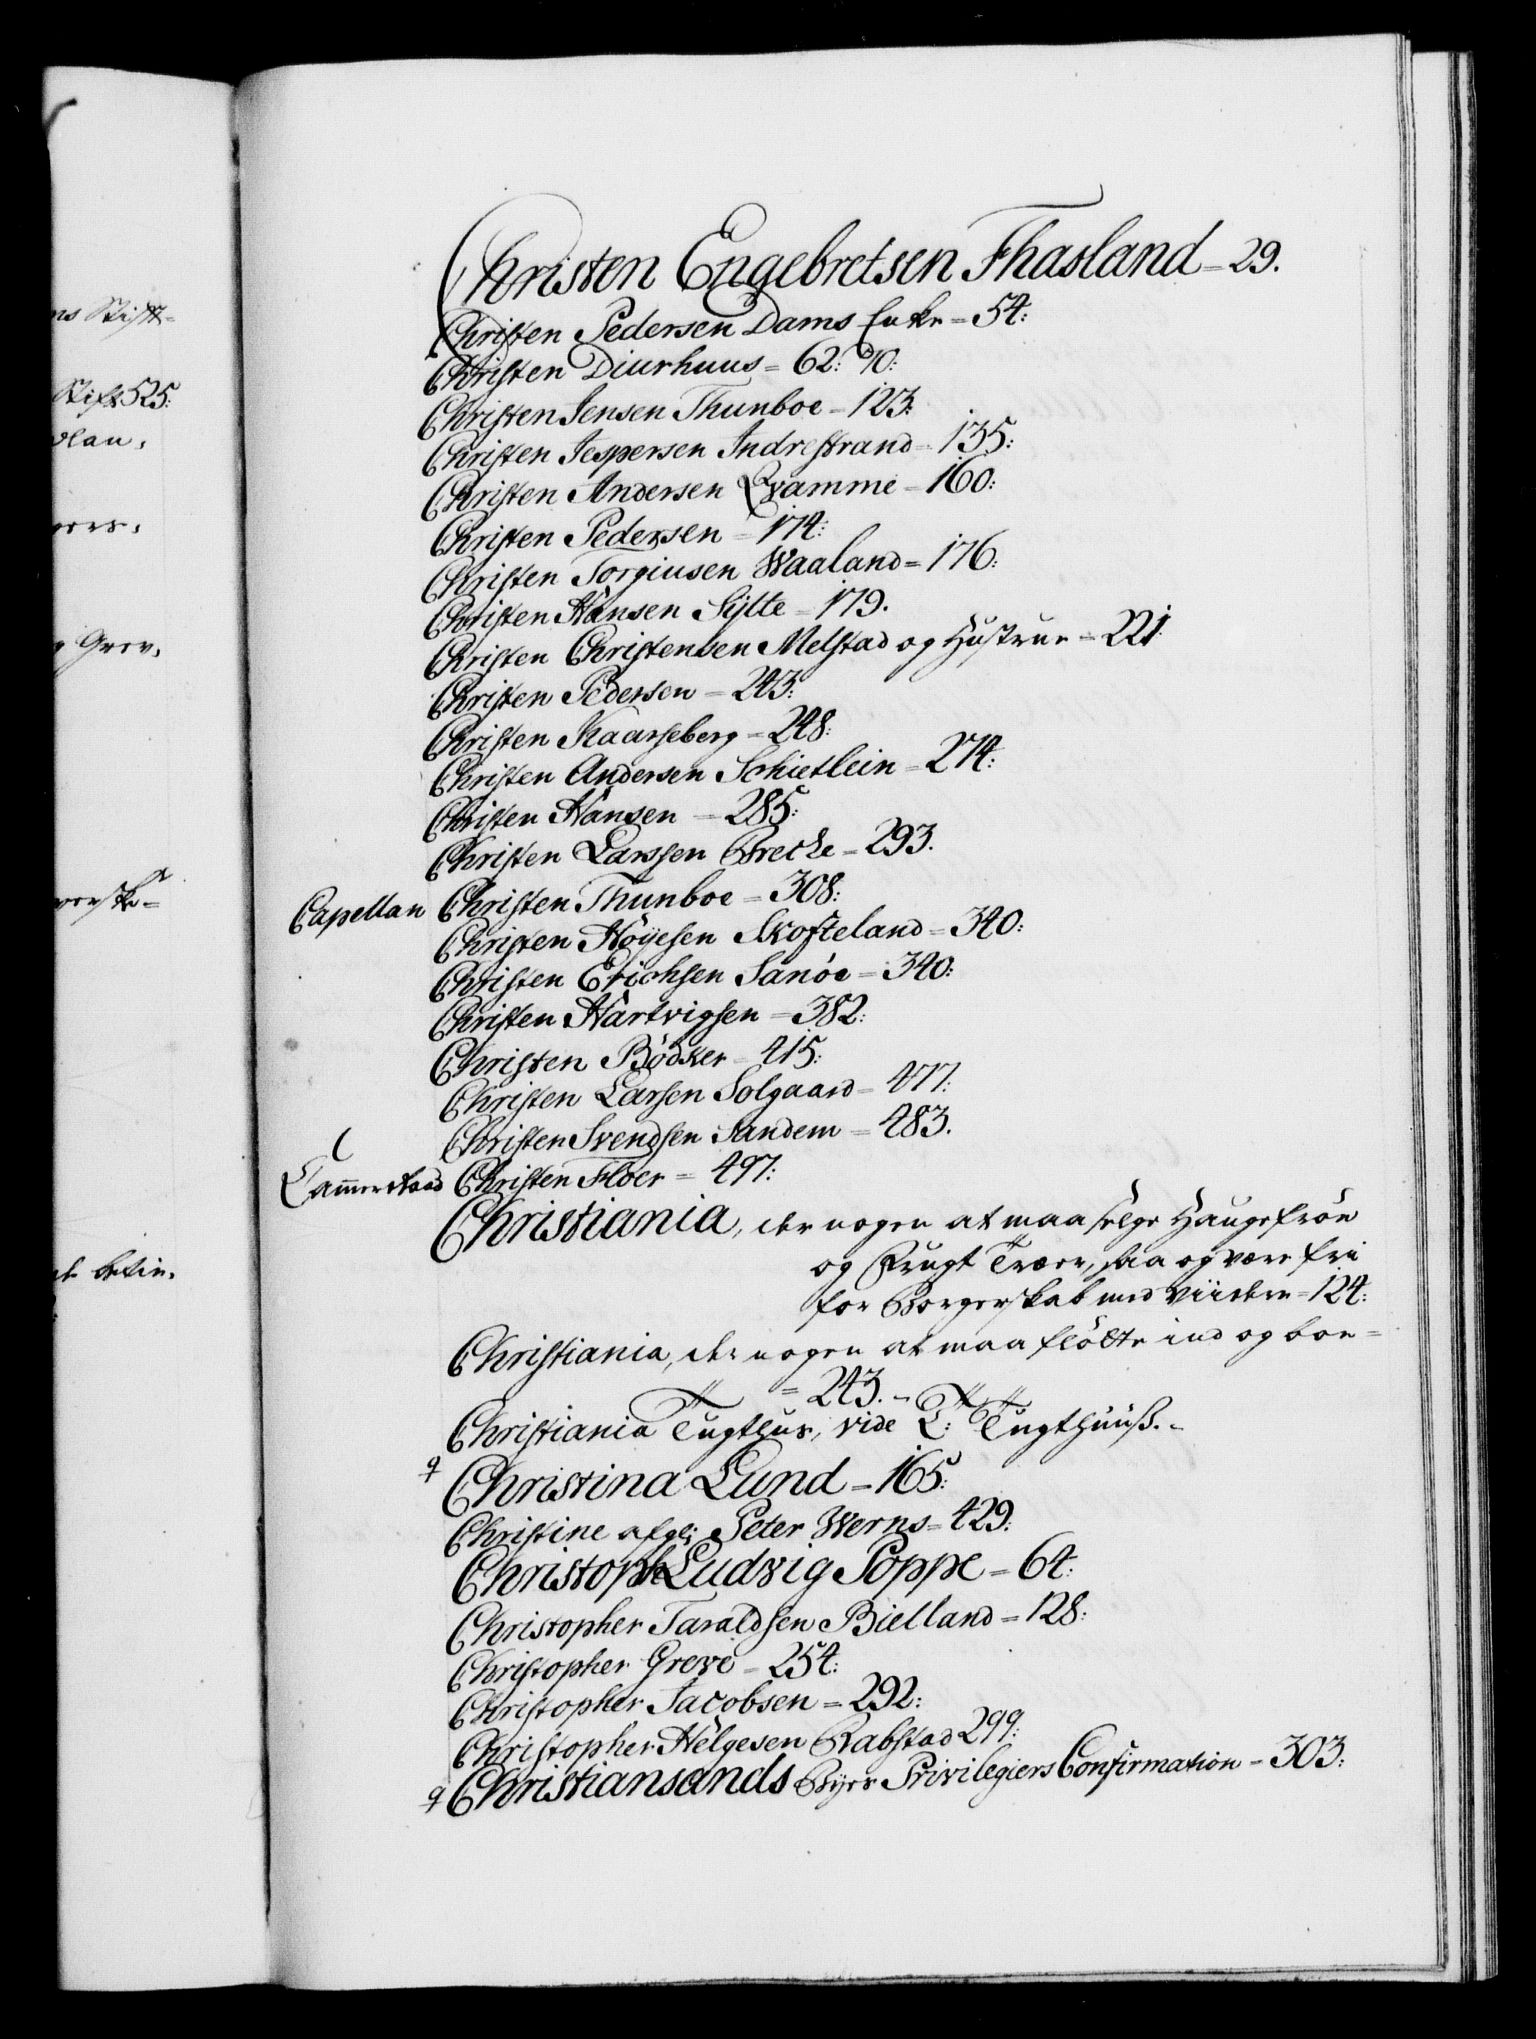 Christen Engebretsen Fhasland = 29.
Christen Pedersen Dams Enke = 54:
Christen Diurhuus = 62: 70:
Christen Jensen Thunboe = 123:
Christen Jespersen Indrestrand = 135:
Christen Andersen Qvamme = 160:
Christen Pedersen = 174:
Christen Torgiusen Waaland = 176:
Christen Hansen Sÿtte = 179.
Christen Christensen Melstad og Hustrue = 221:
Christen Pedersen = 243:
Christen Kaarseberg = 248:
Christen Andersen Schietlein = 274:
Christen Hansen = 285:
Christen Larssen Breche = 293.
Capellan Christen Thunboe = 308:
Christen Höÿesen Skofteland = 340:
Christen Erichsen Sanöe = 340:
Christen Hartvigsen = 382:
Christen Bödker = 415:
Christen Larsen Solgaard = 477:
Christen Svendsen Sandem = 483.
Cammerraad Christen Floer = 497:
Christiania, der nogen at maa selge Haugefröe
og Frugt Træer, saa og være fri
for Borgerskab med Viidere = 124:
Christiania, der nogen at maa flötte ind og boe =
= 243. =
Christiania Tugthus, vide L: T: Tugthuuß. =
Christina Lund = 165:
Christine afgl: Peter Werns = 429:
Christoph Ludvig Poppe = 64:
Christopher Taraldsen Bielland = 128:
Christopher Greve = 254:
Christopher Jacobsen = 292:
Christopher Helgesen Rabstad 299:
Christiansands Byes Privilegiers Confirmation = 303: